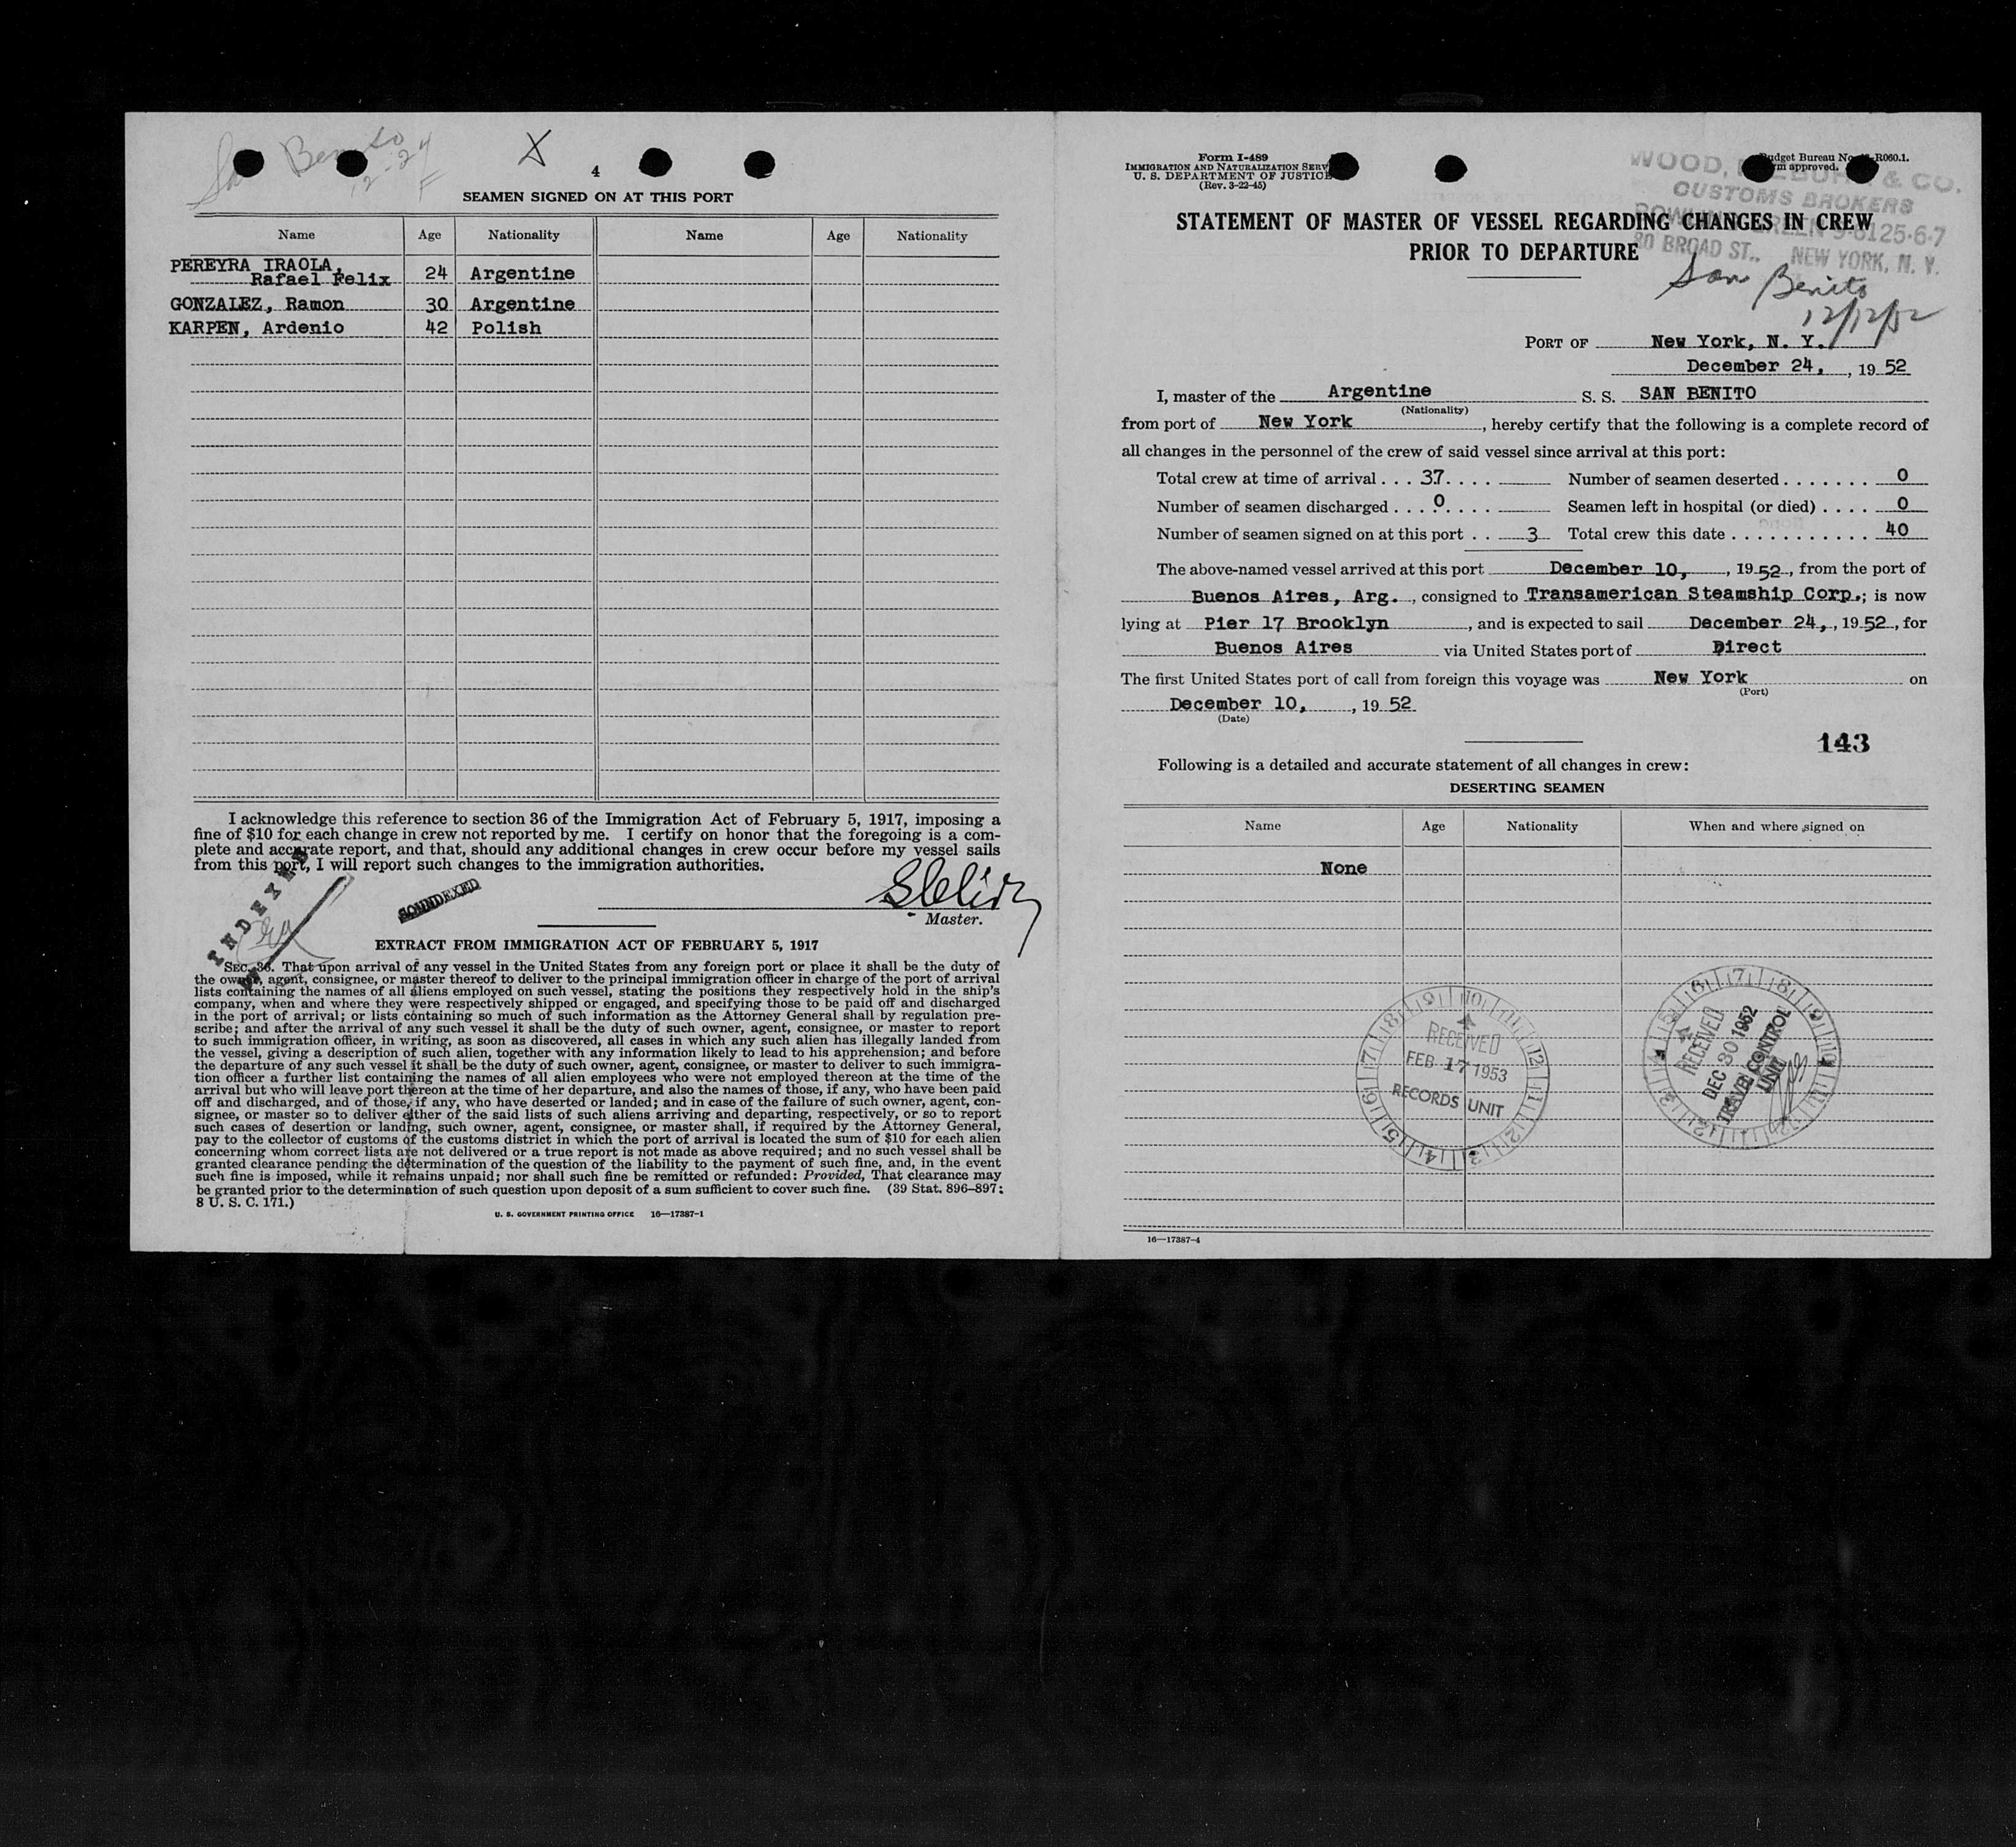 San Benito
12-24
X
4
SEAMEN SIGNED ON AT THIS PORT
Name Age Nationality Name Age Nationality
PEREYRA IRAOLA,
Rafael Felix 24 Argentine
GONZALEZ, Ramon 30 Argentine
KARPEN, Ardenio 42 Polish
I acknowledge this reference to section 36 of the Immigration Act of February 5, 1917, imposing a
fine of $10 for each change in crew not reported by me. I certify on honor that the foregoing is a com-
plete and accurate report, and that, should any additional changes in crew occur before my vessel sails
from this port, I will report such changes to the immigration authorities.
INDEXED
SOUNDEXED
Master.
EXTRACT FROM IMMIGRATION ACT OF FEBRUARY 5, 1917
SEC. 36. That upon arrival of any vessel in the United States from any foreign port or place it shall be the duty of
the owner, agent, consignee, or master thereof to deliver to the principal immigration officer in charge of the port of arrival
lists containing the names of all aliens employed on such vessel, stating the positions they respectively hold in the ship's
company, when and where they were respectively shipped or engaged, and specifying those to be paid off and discharged
in the port of arrival; or lists containing so much of such information as the Attorney General shall by regulation pre-
scribe; and after the arrival of any such vessel it shall be the duty of such owner, agent, consignee, or master to report
to such immigration officer, in writing, as soon as discovered, all cases in which any such alien has illegally landed from
the vessel, giving a description of such alien, together with any information likely to lead to his apprehension; and before
the departure of any such vessel it shall be the duty of such owner, agent, consignee, or master to deliver to such immigra-
tion officer a further list containing the names of all alien employees who were not employed thereon at the time of the
arrival but who will leave port thereon at the time of her departure, and also the names of those, if any, who have been paid
off and discharged, and of those, if any, who have deserted or landed; and in case of the failure of such owner, agent, con-
signee, or master so to deliver either of the said lists of such aliens arriving and departing, respectively, or so to report
such cases of desertion or landing, such owner, agent, consignee, or master shall, if required by the Attorney General,
pay to the collector of customs of the customs district in which the port of arrival is located the sum of $10 for each alien
concerning whom correct lists are not delivered or a true report is not made as above required; and no such vessel shall be
granted clearance pending the determination of the question of the liability to the payment of such fine, and, in the event
such fine is imposed, while it remains unpaid; nor shall such fine be remitted or refunded: Provided, That clearance may
be granted prior to the determination of such question upon deposit of a sum sufficient to cover such fine. (39 Stat. 896–897;
8 U. S. C. 171.)
U. S. GOVERNMENT PRINTING OFFICE 16—17387-1
Form I-489
IMMIGRATION AND NATURALIZATION SERV
U. S. DEPARTMENT OF JUSTICE
(Rev. 3-22-45)
Budget Bureau No. R060.1.
approved.
WOOD, & CO.
CUSTOMS BROKERS
BOWLING GREEN 9-6125-6-7
80 BROAD ST., NEW YORK, N. Y.
STATEMENT OF MASTER OF VESSEL REGARDING CHANGES IN CREW
PRIOR TO DEPARTURE
San Benito
12/12/52
PORT OF New York, N. Y.
December 24, , 19 52
I, master of the Argentine S. S. SAN BENITO
(Nationality)
from port of New York , hereby certify that the following is a complete record of
all changes in the personnel of the crew of said vessel since arrival at this port:
Total crew at time of arrival . . . 37. . . . Number of seamen deserted . . . . . . . 0
Number of seamen discharged . . . 0. . . . Seamen left in hospital (or died) . . . . 0
Number of seamen signed on at this port . . 3 Total crew this date . . . . . . . . . . . 40
The above-named vessel arrived at this port December 10, , 19 52, from the port of
Buenos Aires, Arg. , consigned to Transamerican Steamship Corp.; is now
lying at Pier 17 Brooklyn , and is expected to sail December 24, , 19 52, for
Buenos Aires via United States port of Direct
The first United States port of call from foreign this voyage was New York on
(Port)
December 10, , 19 52
(Date)
143
Following is a detailed and accurate statement of all changes in crew:
DESERTING SEAMEN
Name Age Nationality When and where signed on
None
RECEIVED
FEB 17 1953
RECORDS UNIT
RECEIVED
DEC 30 1952
TRAVEL CONTROL
UNIT
16—17387-4